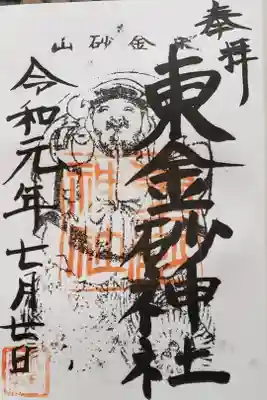 奉拝
東金砂山
東金砂神社
令和元年七月廿日